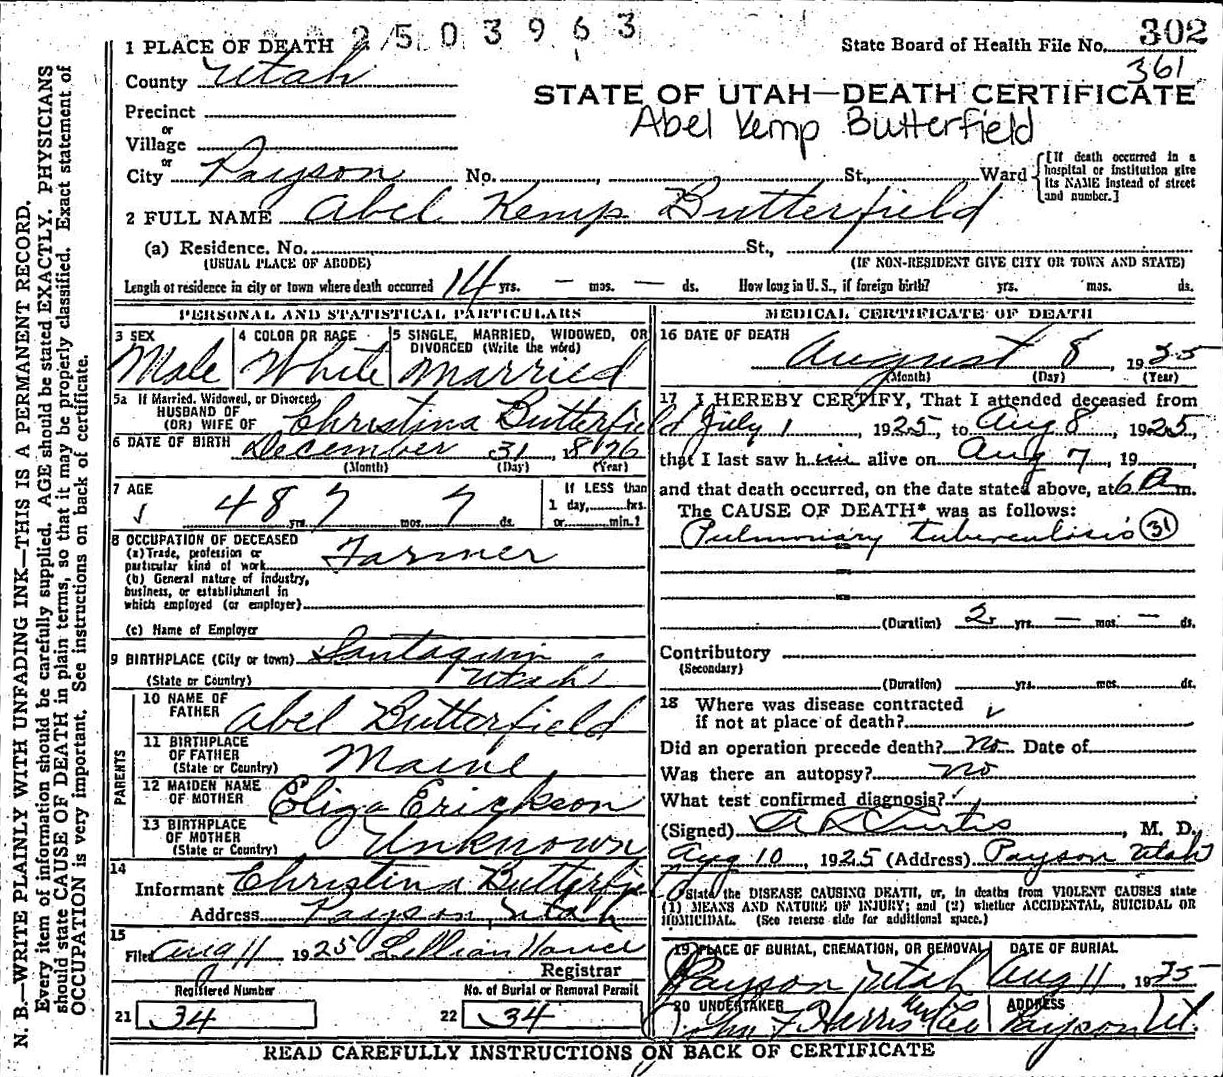 2503963
302
State Board of Health File No.
361
1 PLACE OF DEATH
County Utah
STATE OF UTAH—DEATH CERTIFICATE
Abel Kemp Butterfield
Precinct
or
Village
or
City Payson No. , St., Ward
[If death occurred in a hospital or institution give its NAME instead of street and number.]
2 FULL NAME Abel Kemp Butterfield
(a) Residence. No. St.,
(USUAL PLACE OF ABODE) (IF NON-RESIDENT GIVE CITY OR TOWN AND STATE)
Length of residence in city or town where death occurred 14 yrs. — mos. — ds. How long in U. S., if foreign birth? yrs. mos. ds.
PERSONAL AND STATISTICAL PARTICULARS
3 SEX Male
4 COLOR OR RACE White
5 SINGLE, MARRIED, WIDOWED, OR DIVORCED (Write the word) Married
5a If Married, Widowed, or Divorced,
HUSBAND OF
(OR) WIFE OF Christina Butterfield
6 DATE OF BIRTH December 31, 1876
(Month) (Day) (Year)
7 AGE 48 yrs. 7 mos. 7 ds.
If LESS than
1 day, hrs.
or min.?
8 OCCUPATION OF DECEASED
(a) Trade, profession or
particular kind of work Farmer
(b) General nature of industry,
business, or establishment in
which employed (or employer)
(c) Name of Employer
9 BIRTHPLACE (City or town) Santaquin
(State or Country) Utah
PARENTS
10 NAME OF
FATHER Abel Butterfield
11 BIRTHPLACE
OF FATHER
(State or Country) Maine
12 MAIDEN NAME
OF MOTHER Eliza Erickson
13 BIRTHPLACE
OF MOTHER
(State or Country) Unknown
14
Informant Christina Butterfie
Address Payson, Utah
15
Filed Aug 11 1925 Lillian Vance
Registrar
Registered Number No. of Burial or Removal Permit
21 34 22 34
MEDICAL CERTIFICATE OF DEATH
16 DATE OF DEATH
August 8, 1925
(Month) (Day) (Year)
17 I HEREBY CERTIFY, That I attended deceased from
July 1, 1925, to Aug 8, 1925,
that I last saw him alive on Aug 7, 19 ,
and that death occurred, on the date stated above, at 6 A m.
The CAUSE OF DEATH* was as follows:
Pulmonary tuberculosis 31
(Duration) 2 yrs. — mos. — ds.
Contributory
(Secondary)
(Duration) yrs. mos. ds.
18 Where was disease contracted
if not at place of death?
Did an operation precede death? No Date of
Was there an autopsy? No
What test confirmed diagnosis?
(Signed) A L Curtis, M. D.
Aug 10, 1925 (Address) Payson Utah
*State the DISEASE CAUSING DEATH, or, in deaths from VIOLENT CAUSES state
(1) MEANS AND NATURE OF INJURY; and (2) whether ACCIDENTAL, SUICIDAL OR
HOMICIDAL. (See reverse side for additional space.)
19 PLACE OF BURIAL, CREMATION, OR REMOVAL DATE OF BURIAL
Payson Utah Aug 11, 1925
20 UNDERTAKER ADDRESS
Jno F Harris Payson Ut.
READ CAREFULLY INSTRUCTIONS ON BACK OF CERTIFICATE
N. B.—WRITE PLAINLY WITH UNFADING INK—THIS IS A PERMANENT RECORD.
Every item of information should be carefully supplied. AGE should be stated EXACTLY. PHYSICIANS
should state CAUSE OF DEATH in plain terms, so that it may be properly classified. Exact statement of
OCCUPATION is very important. See instructions on back of certificate.